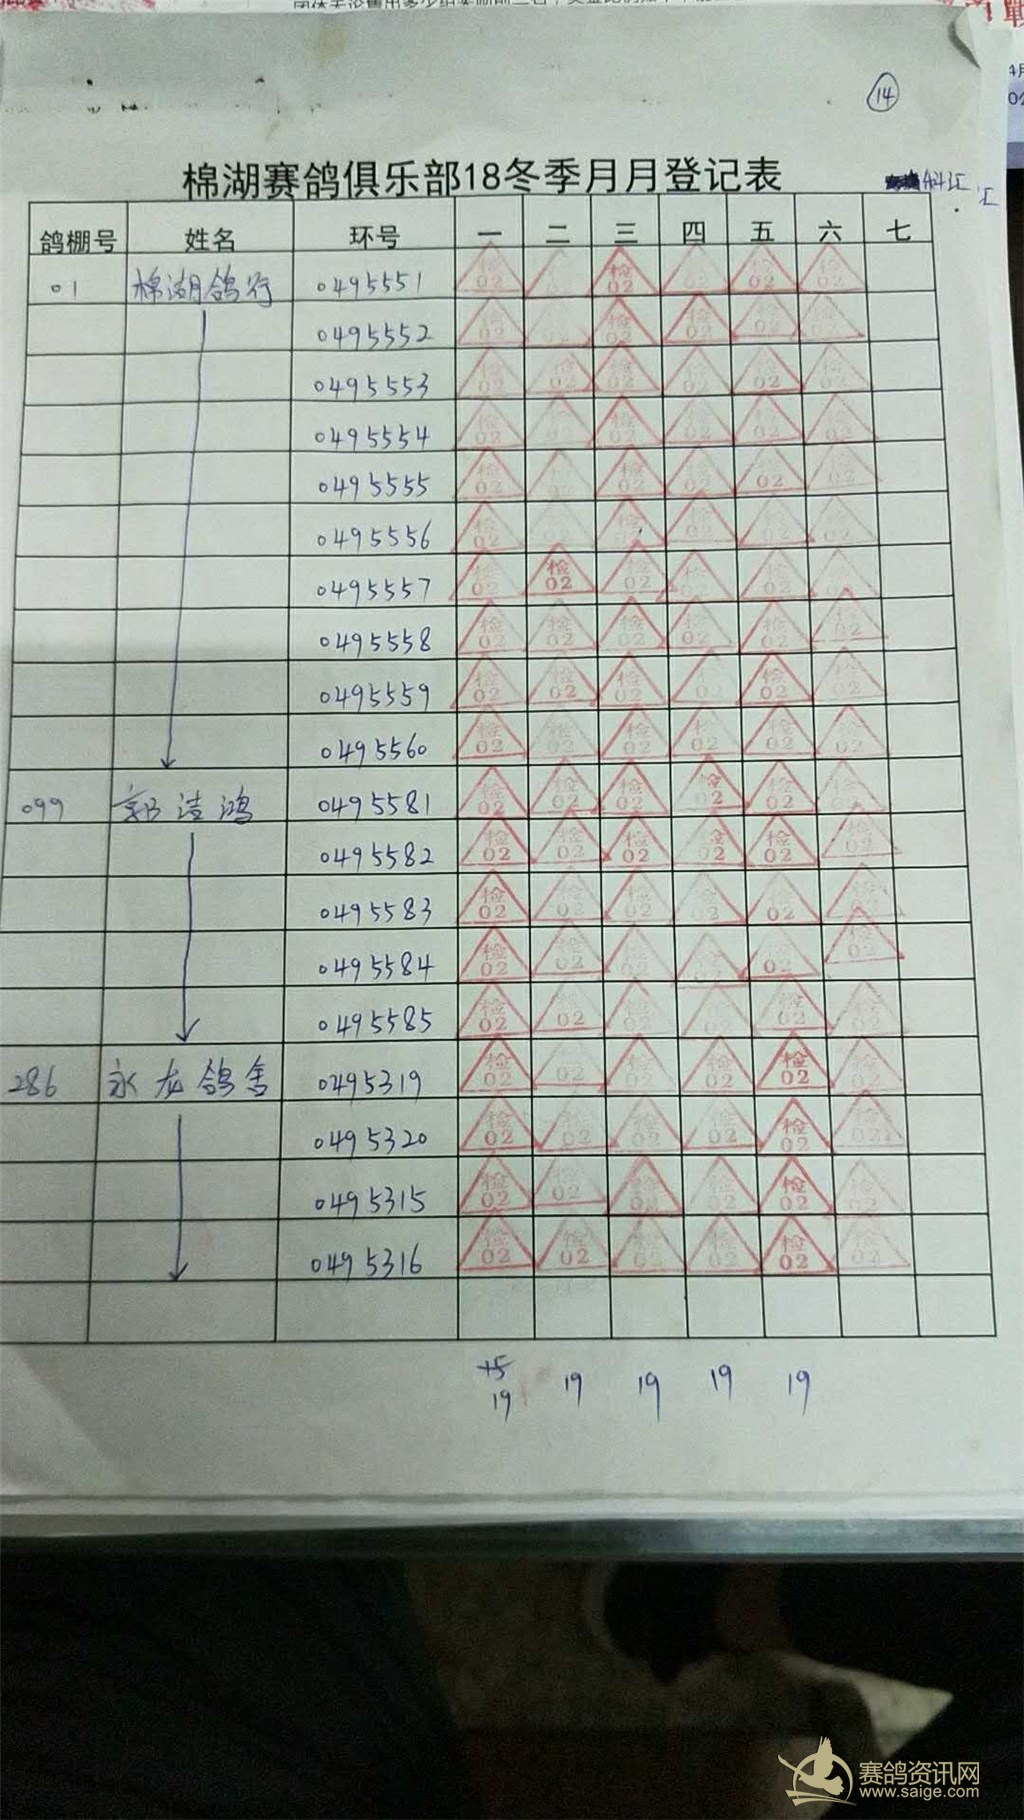 14
棉湖赛鸽俱乐部18冬季月月登记表
鸽棚号 姓名 环号 一 二 三 四 五 六 七
01 棉湖鸽行 0495551 检02 检02 检02 检02 检02 检02
0495552 检02 检02 检02 检02 检02 检02
0495553 检02 检02 检02 检02 检02 检02
0495554 检02 检02 检02 检02 检02 检02
0495555 检02 检02 检02 检02 检02 检02
0495556 检02 检02 检02 检02 检02 检02
0495557 检02 检02 检02 检02 检02 检02
0495558 检02 检02 检02 检02 检02 检02
0495559 检02 检02 检02 检02 检02 检02
0495560 检02 检02 检02 检02 检02 检02
099 郭洁鸿 0495581 检02 检02 检02 检02 检02 检02
0495582 检02 检02 检02 检02 检02 检02
0495583 检02 检02 检02 检02 检02 检02
0495584 检02 检02 检02 检02 检02 检02
0495585 检02 检02 检02 检02 检02 检02
286 永龙鸽舍 0495319 检02 检02 检02 检02 检02 检02
0495320 检02 检02 检02 检02 检02 检02
0495315 检02 检02 检02 检02 检02 检02
0495316 检02 检02 检02 检02 检02 检02
19 19 19 19 19
赛鸽资讯网
www.saige.com